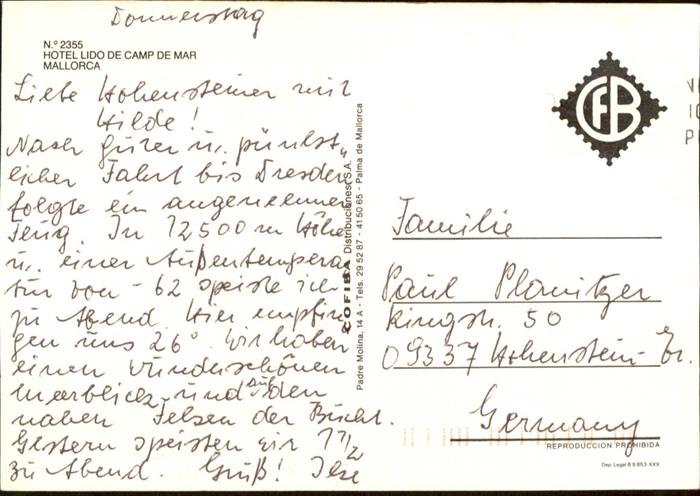 Donnerstag
N.º 2355
HOTEL LIDO DE CAMP DE MAR
MALLORCA
Liebe Hohensteiner mit
Hilde!
Nach guter u. pünkt-
licher Fahrt bis Dresden
folgte ein angenehmer
Flug. In 12,500 m Höhe
u. einer Außentempera
tur von -62 speiste ich
zu Abend. Hier empfin
gen uns 26°. Wir haben
einen wunderschönen
Meerblick und auf den
nahen Felsen der Bucht.
Gestern speisten wir 1 1/2
zu Abend. Gruß! Ilse
COFIBA Distribuciones, S.A.
Padre Molina, 14 A - Tels. 29 52 87 - 41 50 65 - Palma de Mallorca
CFB
Familie
Paul Planitzer
Ringstr. 50
09337 Hohenstein-Er.
Germany
REPRODUCCION PROHIBIDA
Dep. Legal B 9.853-XXX